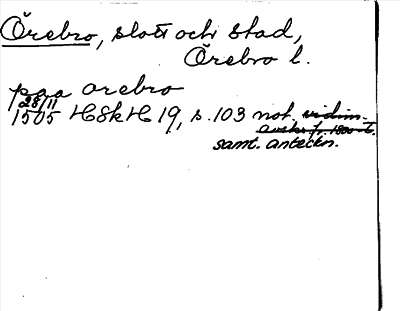 Örebro, slott och stad,
Örebro l.
paa orebro
28/11
1505 HSkH 19, s. 103 not. vidim.
avskr. fr. 1800-t.
samt. anteckn.